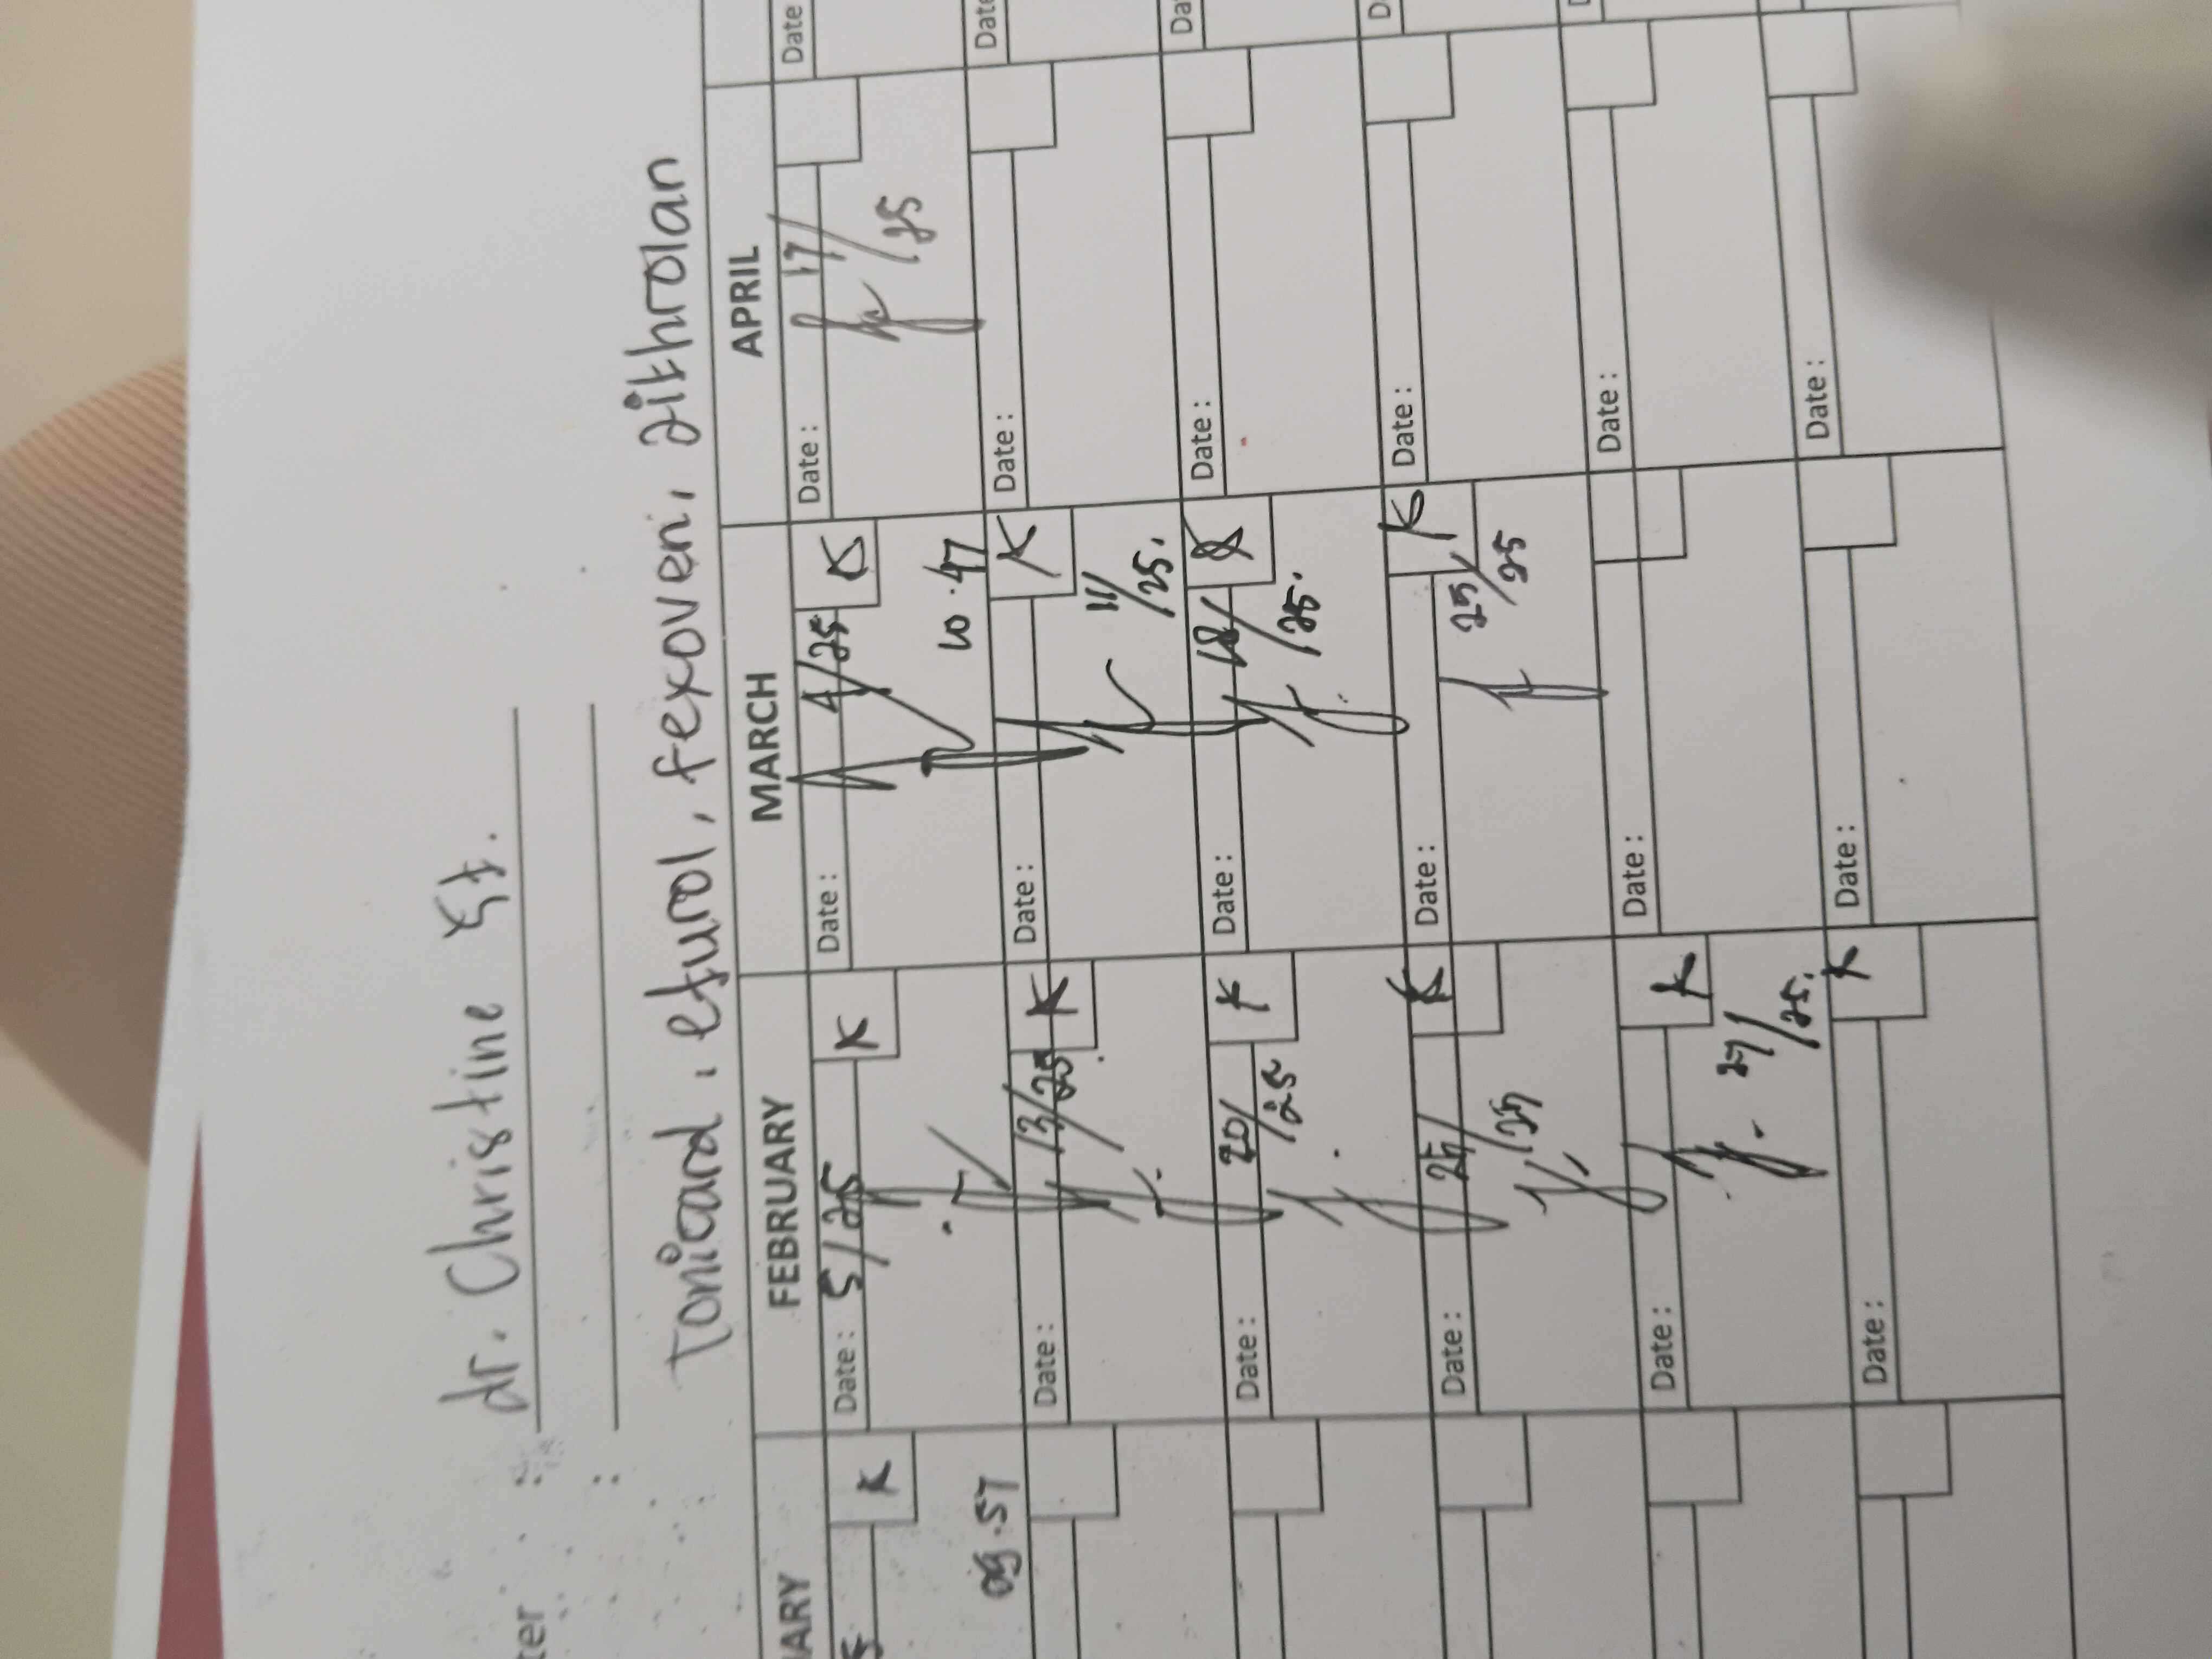 dr. Christine
:
Tonicard, efurol, fexoven, Zithrolan
FEBRUARY MARCH APRIL
Date : 5/25 K Date : 4/25 K Date : 17/25 Date
09.57 10.47
Date : 13/25 K Date : 11/25. K Date :
Date : 20/25 K Date : 18/25. Date :
Date : 25/25 K Date : 25/25 K Date :
Date : 27/25. K Date : Date :
Date : K Date : Date :